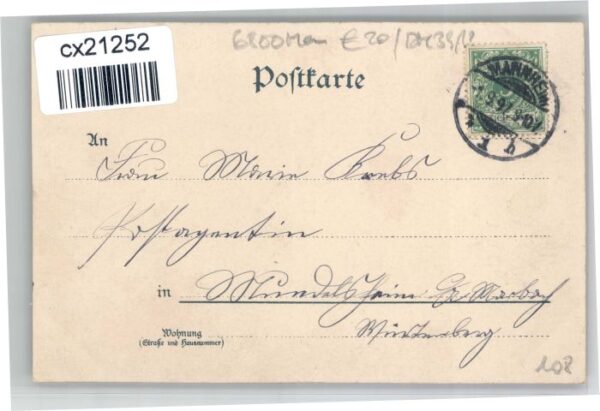 cx21252
6800 Man € 20/DM 39/
Postkarte
MANNHEIM
An
Frau Marie Krebs
Postagentin
in Mundelsheim Bz. Marbach
Württemberg
Wohnung
(Straße und Hausnummer)
108